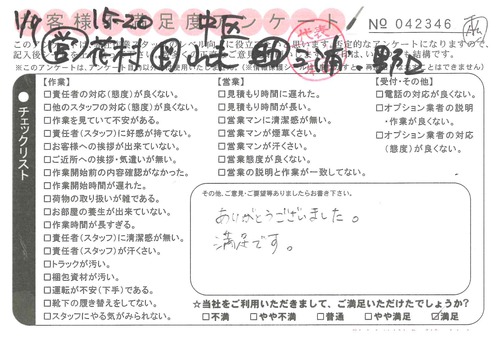 お客様満足度アンケート
No 042346
1/9 15-20 中区
㊢ 花村
【作業】
□責任者の対応(態度)が良くない。
□他のスタッフの対応(態度)が良くない。
□作業を見ていて不安がある。
□責任者(スタッフ)に好感が持てない。
□お客様への挨拶が出来ていない。
□ご近所への挨拶・気遣いが無い。
□作業開始前の内容確認がなかった。
□作業開始時間が遅れた。
□荷物の取り扱いが雑である。
□お部屋の養生が出来ていない。
□作業時間が長すぎる。
□責任者(スタッフ)に清潔感が無い。
□責任者(スタッフ)が汗くさい。
□トラックが汚い。
□梱包資材が汚い。
□運転が不安(下手)である。
□靴下の履き替えをしてない。
□スタッフにやる気がみられない。
【営業】
□見積もり時間に遅れた。
□見積もり時間が長い。
□営業マンに清潔感が無い。
□営業マンが煙草くさい。
□営業マンが汗くさい。
□営業態度が良くない。
□営業の説明と作業が一致してない。
【受付・その他】
□電話の対応が良くない。
□オプション業者の説明
・作業が良くない。
□オプション業者の対応
(態度)が良くない。
チェックリスト
その他、ご意見・ご要望等ありましたらお書き下さい。
ありがとうございました。
満足です。
☆当社をご利用いただきまして、ご満足いただけたでしょうか?
□不満 □やや不満 □普通 □やや満足 ☑満足